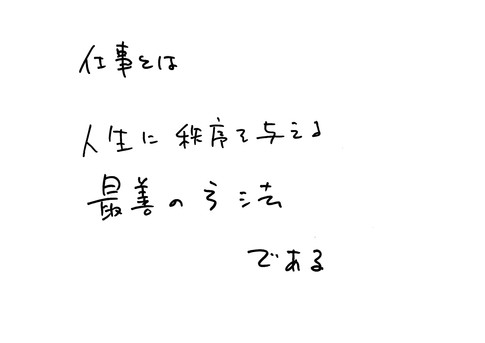 仕事とは
人生に秩序を与える
最善の方法
である